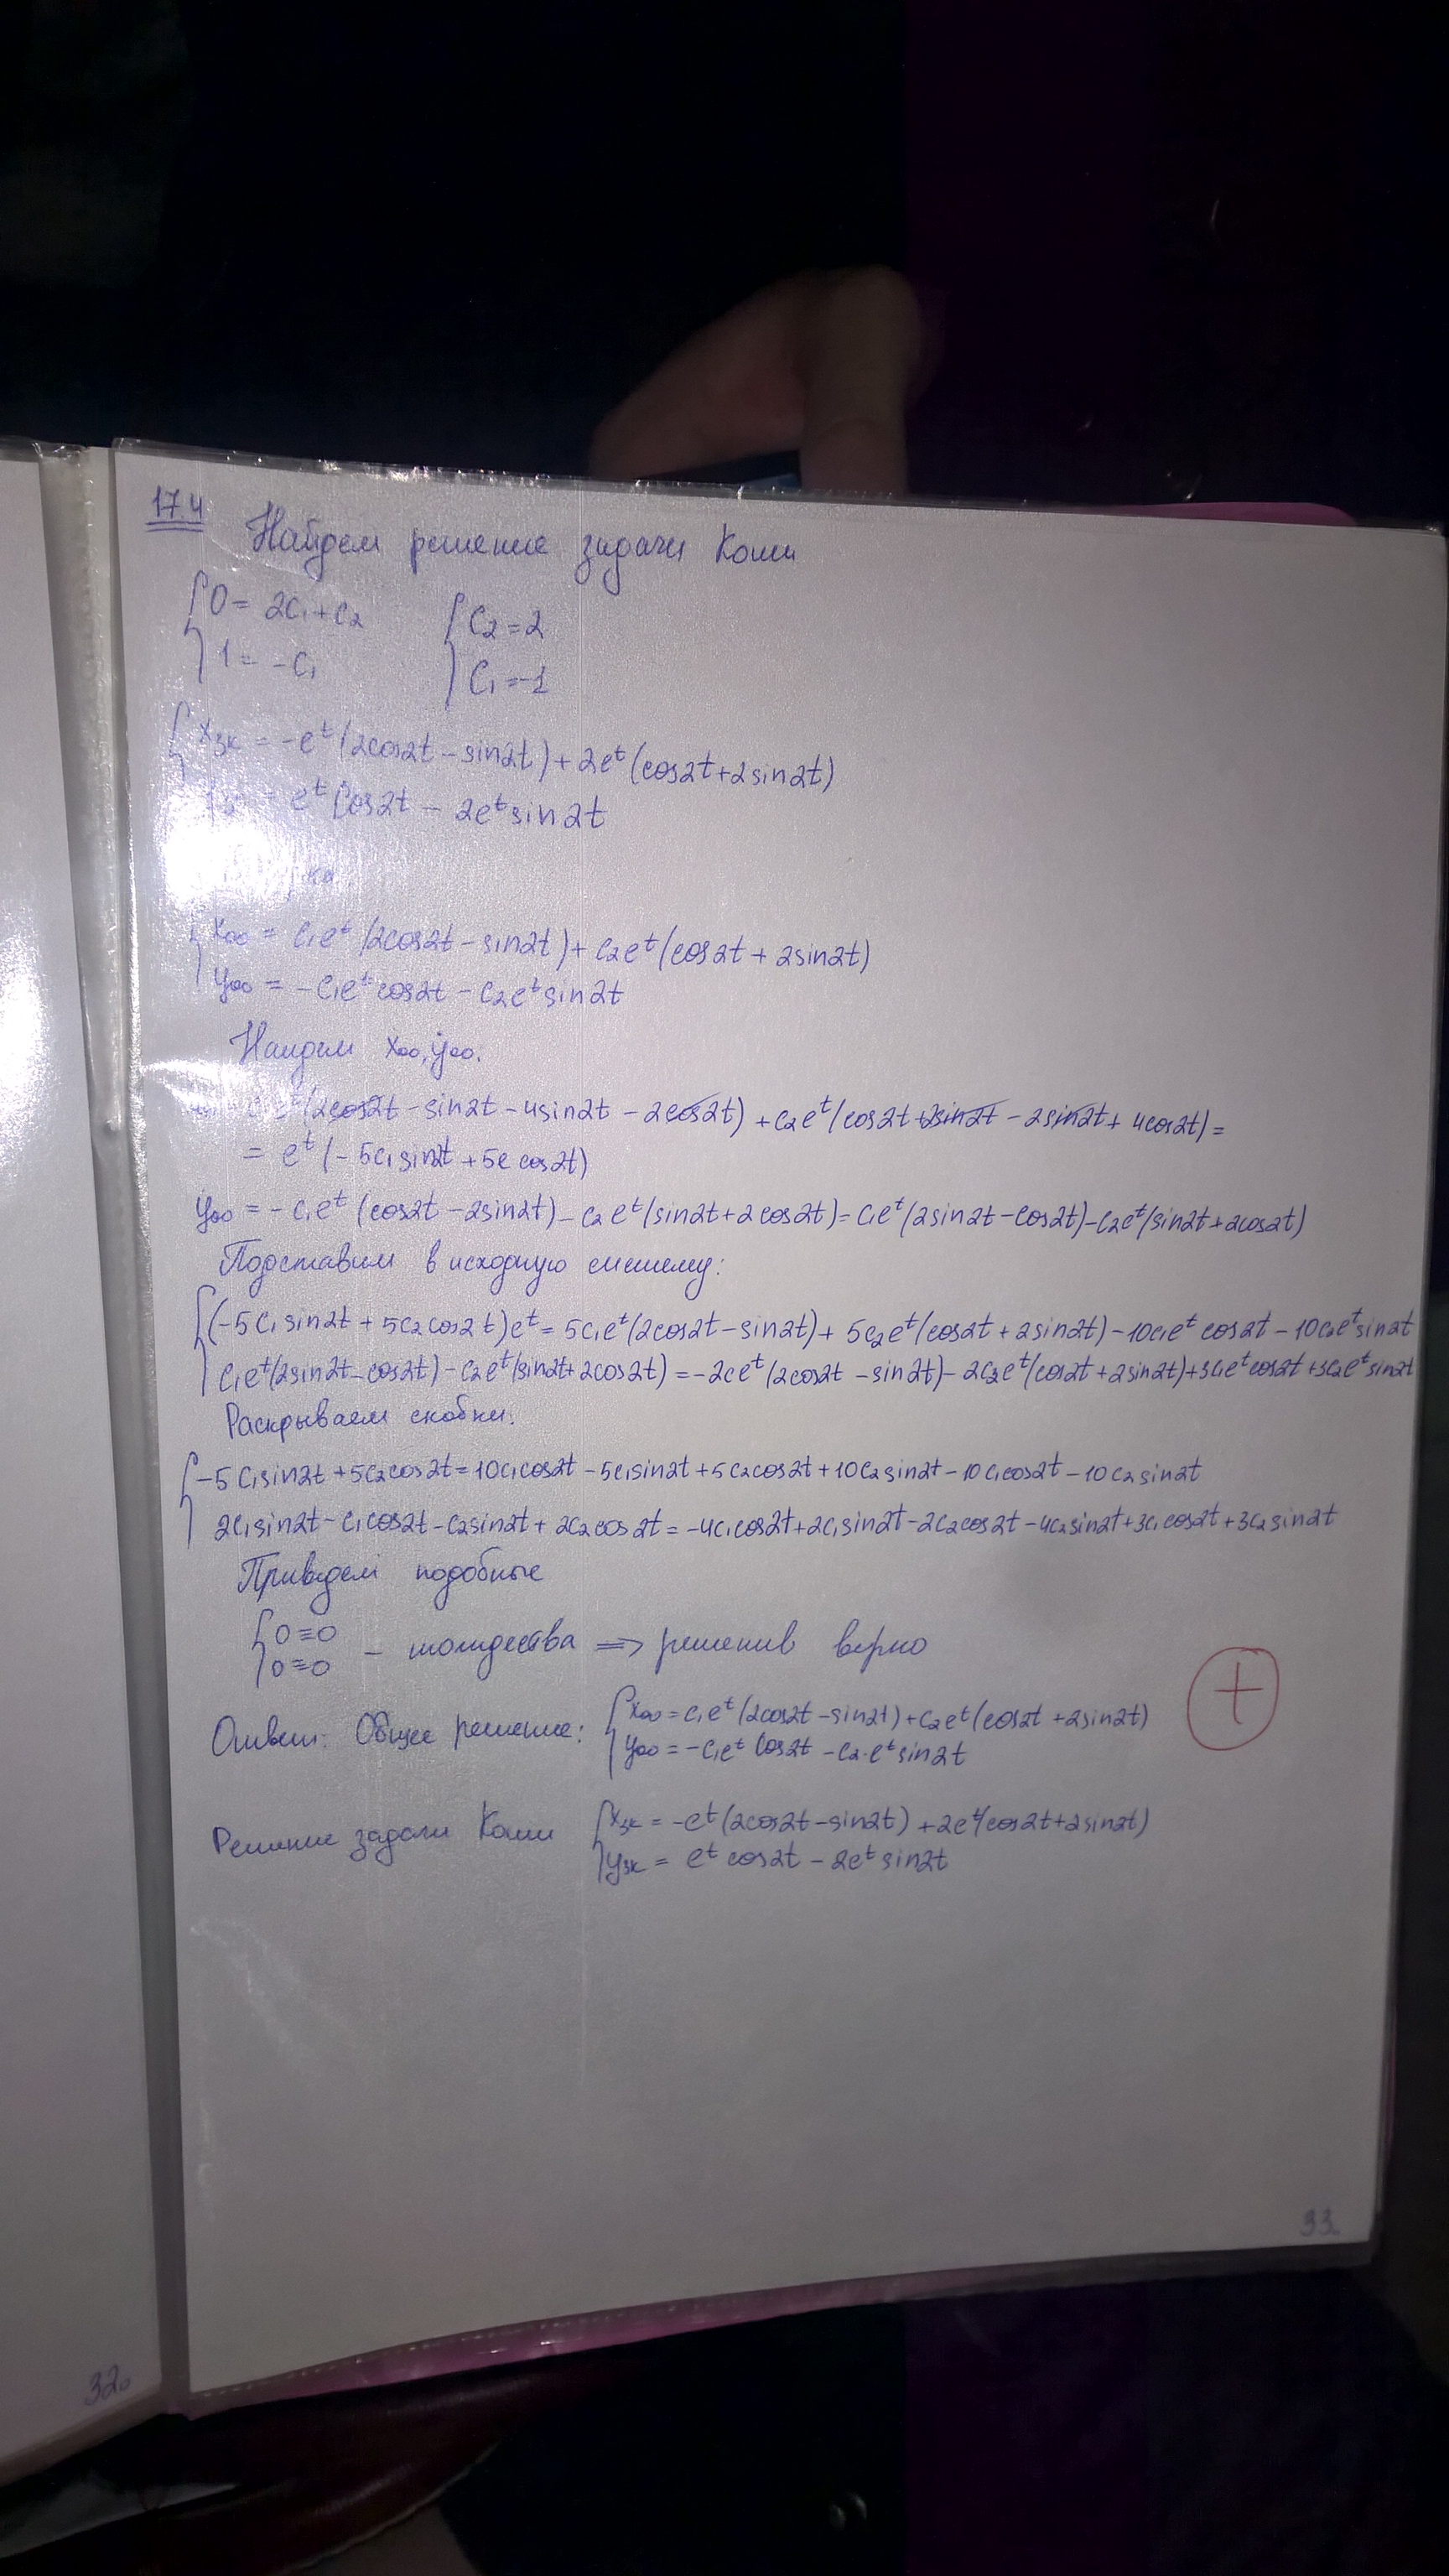 17.4
Найдем решение задачи Коши
{0 = 2C₁ + C₂ {C₂ = 2
{1 = -C₁ {C₁ = -1
{xзк = -eᵗ(2cos2t - sin2t) + 2eᵗ(cos2t + 2sin2t)
= eᵗ cos2t - 2eᵗ sin2t
{xоо = C₁eᵗ(2cos2t - sin2t) + C₂eᵗ(cos2t + 2sin2t)
{yоо = -C₁eᵗ cos2t - C₂eᵗ sin2t
Найдем ẋоо, ẏоо:
eᵗ(2cos2t - sin2t - 4sin2t - 2cos2t) + C₂eᵗ(cos2t + 2sin2t - 2sin2t + 4cos2t) =
= eᵗ(-5C₁sin2t + 5C cos2t)
ẏоо = -C₁eᵗ(cos2t - 2sin2t) - C₂eᵗ(sin2t + 2cos2t) = C₁eᵗ(2sin2t - cos2t) - C₂eᵗ(sin2t + 2cos2t)
Подставим в исходную систему:
{(-5C₁sin2t + 5C₂cos2t)eᵗ = 5C₁eᵗ(2cos2t - sin2t) + 5C₂eᵗ(cos2t + 2sin2t) - 10C₁eᵗ cos2t - 10C₂eᵗ sin2t
{C₁eᵗ(2sin2t - cos2t) - C₂eᵗ(sin2t + 2cos2t) = -2Ceᵗ(2cos2t - sin2t) - 2C₂eᵗ(cos2t + 2sin2t) + 3C₁eᵗ cos2t + 3C₂eᵗ sin2t
Раскрываем скобки:
{-5C₁sin2t + 5C₂cos2t = 10C₁cos2t - 5C₁sin2t + 5C₂cos2t + 10C₂sin2t - 10C₁cos2t - 10C₂sin2t
2C₁sin2t - C₁cos2t - C₂sin2t + 2C₂cos2t = -4C₁cos2t + 2C₁sin2t - 2C₂cos2t - 4C₂sin2t + 3C₁cos2t + 3C₂sin2t
Приведем подобные
{0≡0
{0≡0 - тождества ⇒ решение верно
Ответ: Общее решение: {xоо = C₁eᵗ(2cos2t - sin2t) + C₂eᵗ(cos2t + 2sin2t)
{yоо = -C₁eᵗ cos2t - C₂·eᵗ sin2t
+
Решение задачи Коши {xзк = -eᵗ(2cos2t - sin2t) + 2eᵗ(cos2t + 2sin2t)
{yзк = eᵗ cos2t - 2eᵗ sin2t
33.
32.